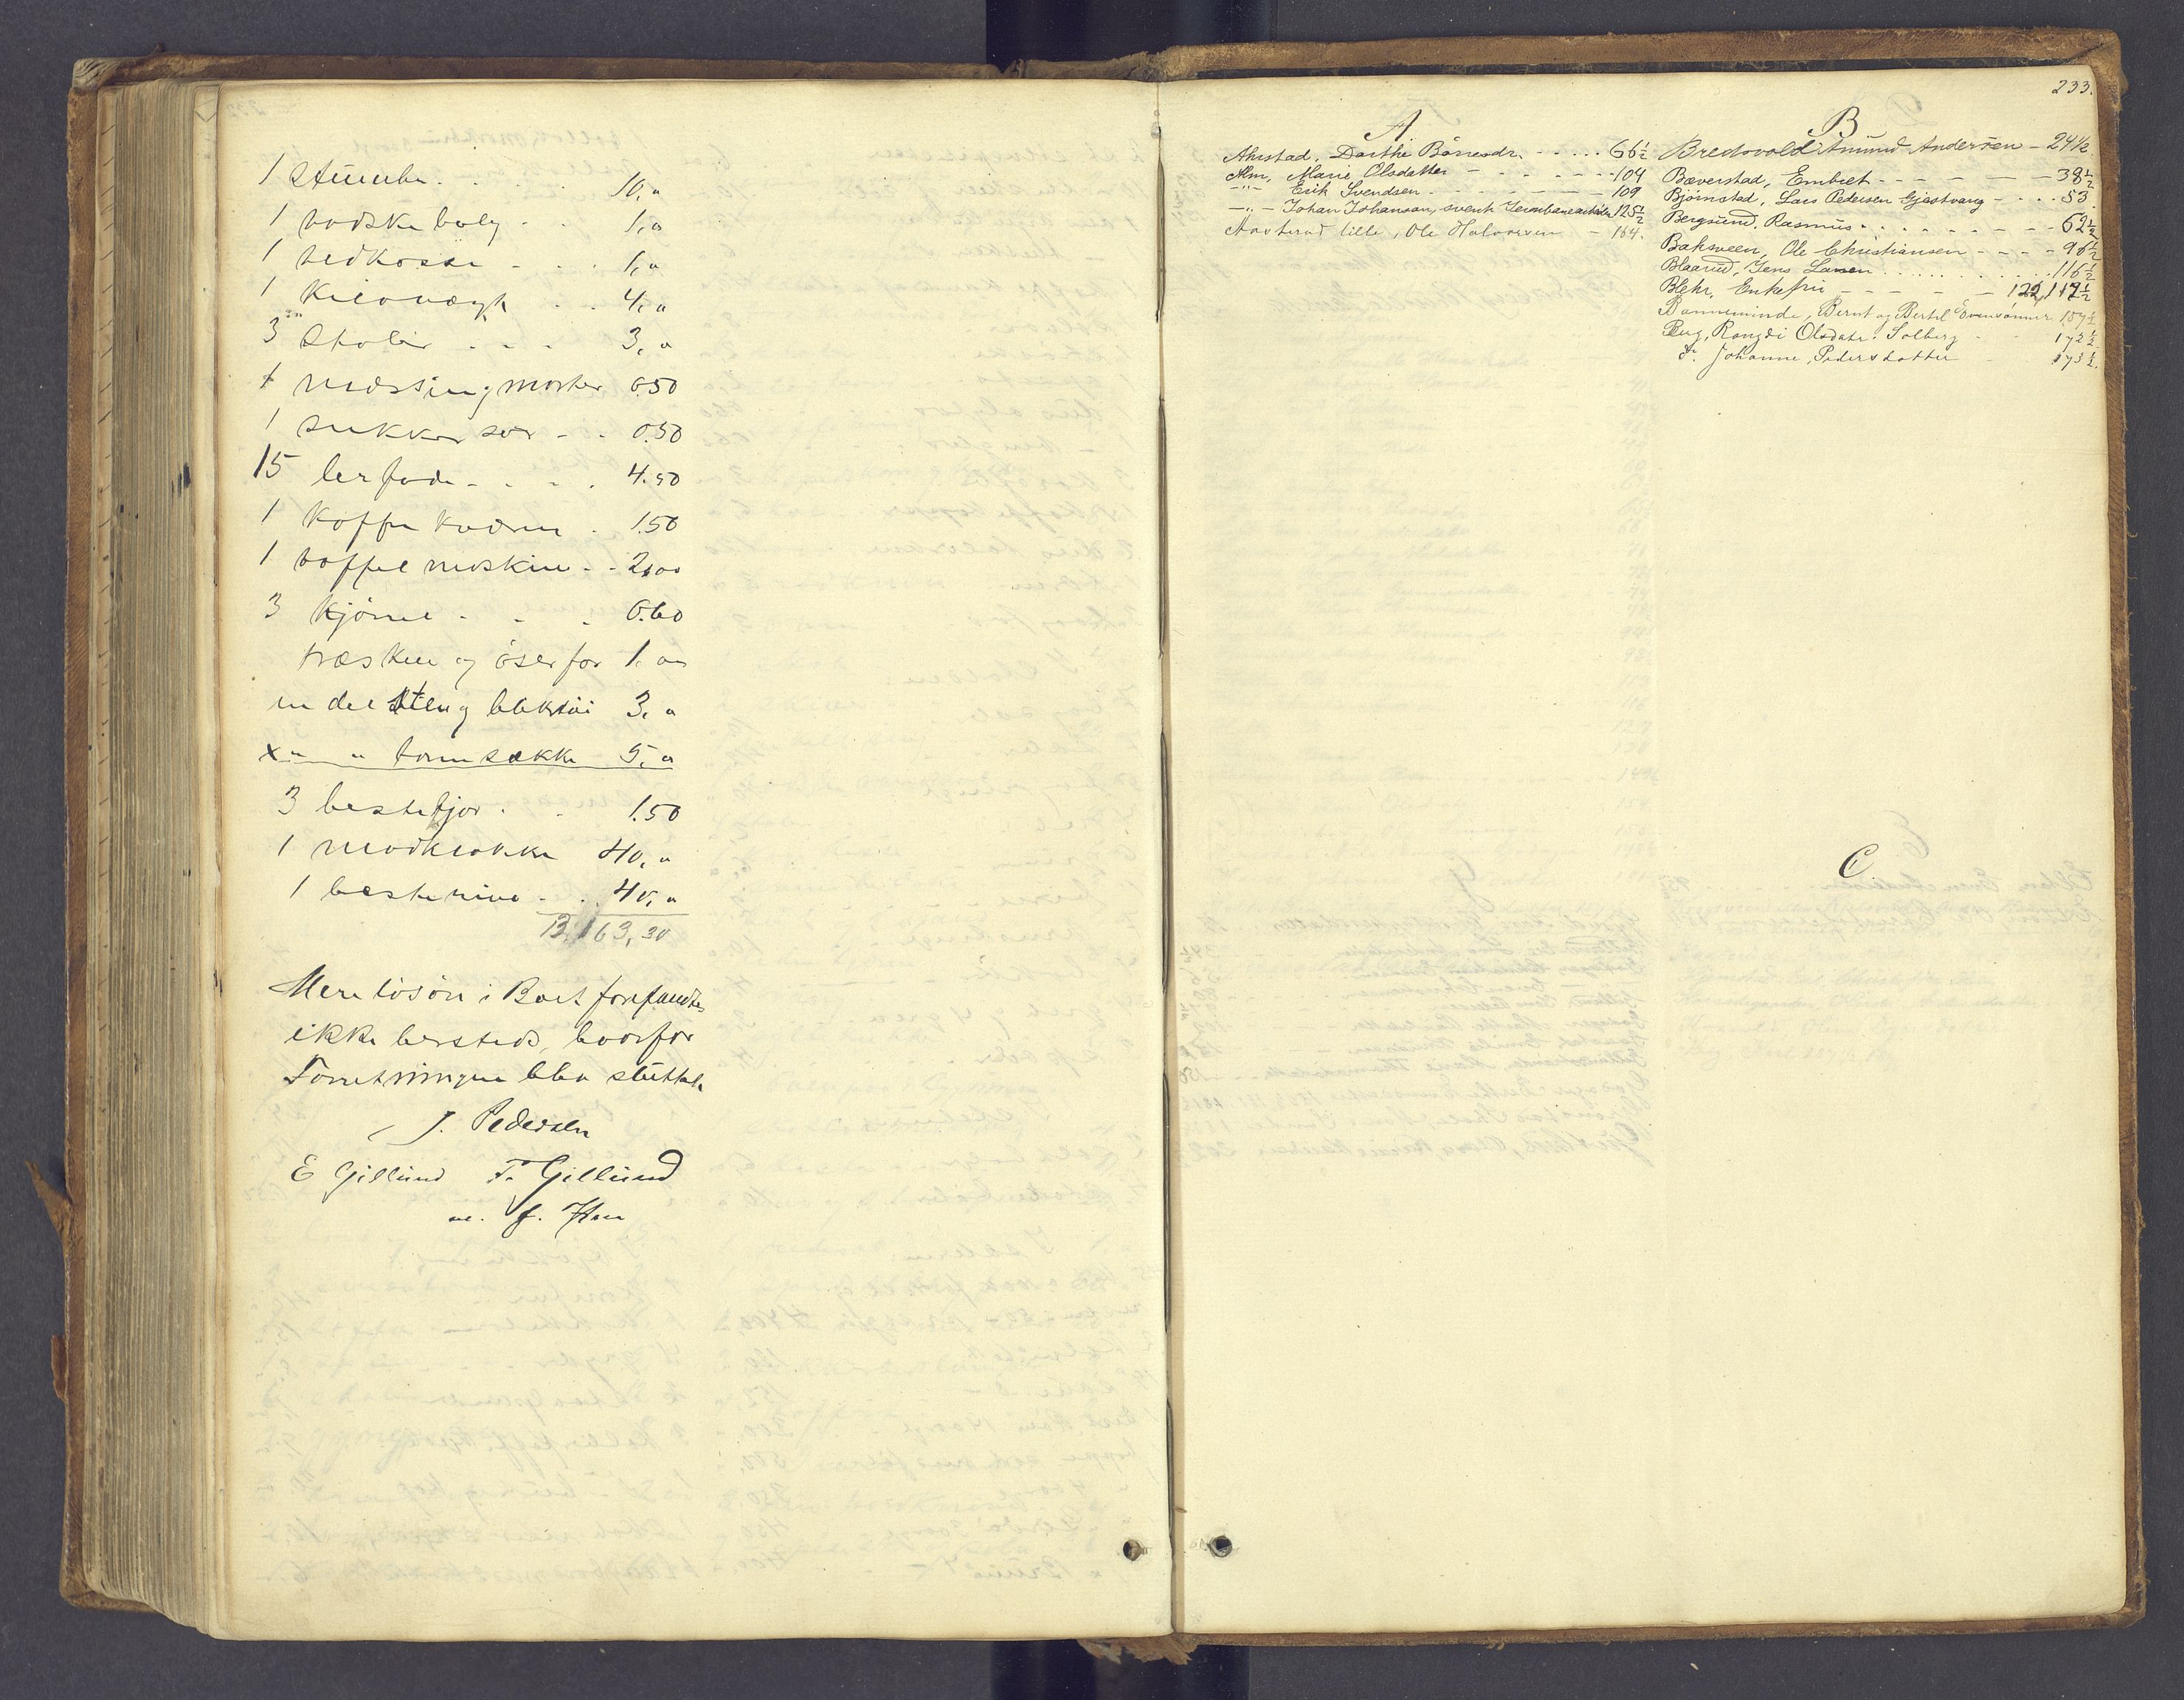 1 Stumba . . . . 10. „
1 vadske balg . . 1. „
1 vedkasse - . . 1. „
1 Kilovægt . . 4. „
3 Stoler . . . 3. „
1 messing morter 0.50
1 sukker sax - . 0.50
15 lerfade - . . . 4.50
1 Kaffe kværn . 1.50
1 vaffel maskine - . 2.00
3 kjørrel . . . 0.60
træskeer og öser for 1. „
en del Steg bliktøi 3. „
x „ „ kornsække 5. „
3 hestetjor . . 1.50
1 melkebøtte 40. „
1 hesterive . . 40. „
13,163,30
Mere løsøre i Boet forefandtes
ikke hersteds, hvorfor
Forretningen blev sluttet.
J. Pedersen
E Gillund T. Gillund
m. f. Pen
233.
A
Ahrstad, Dorthe Börresdr. - . . . . 66½
Alm, Marie Olsdatter - - - - - - 104
- " - Erik Svendsen - - - - - - 109
- " - Johan Johansen, svensk Jernbanearbeider 125½
Aasterud lille, Ole Halvorsen - 164.
B
Bredvold Amund Andersen - 24½
Bæverstad, Embret - - - - - - 38½
Bjørnstad, Lars Pedersen Gjestvang - . . . 53.
Bergsund, Rasmus . . . . - - - - 62½
Baksveen, Ole Christiansen - - - - 96½
Blaarud, Jens Larsen . . . . . . . . . 116½
Blehr, Enkefru - - - - - - 122, 119½
Bannerminde, Bernt og Bertel Evensönner 159½
Berg, Rangdi Olsdatr. Solberg - 172½
d°. Johanne Pedersdatter - 173½.
C.